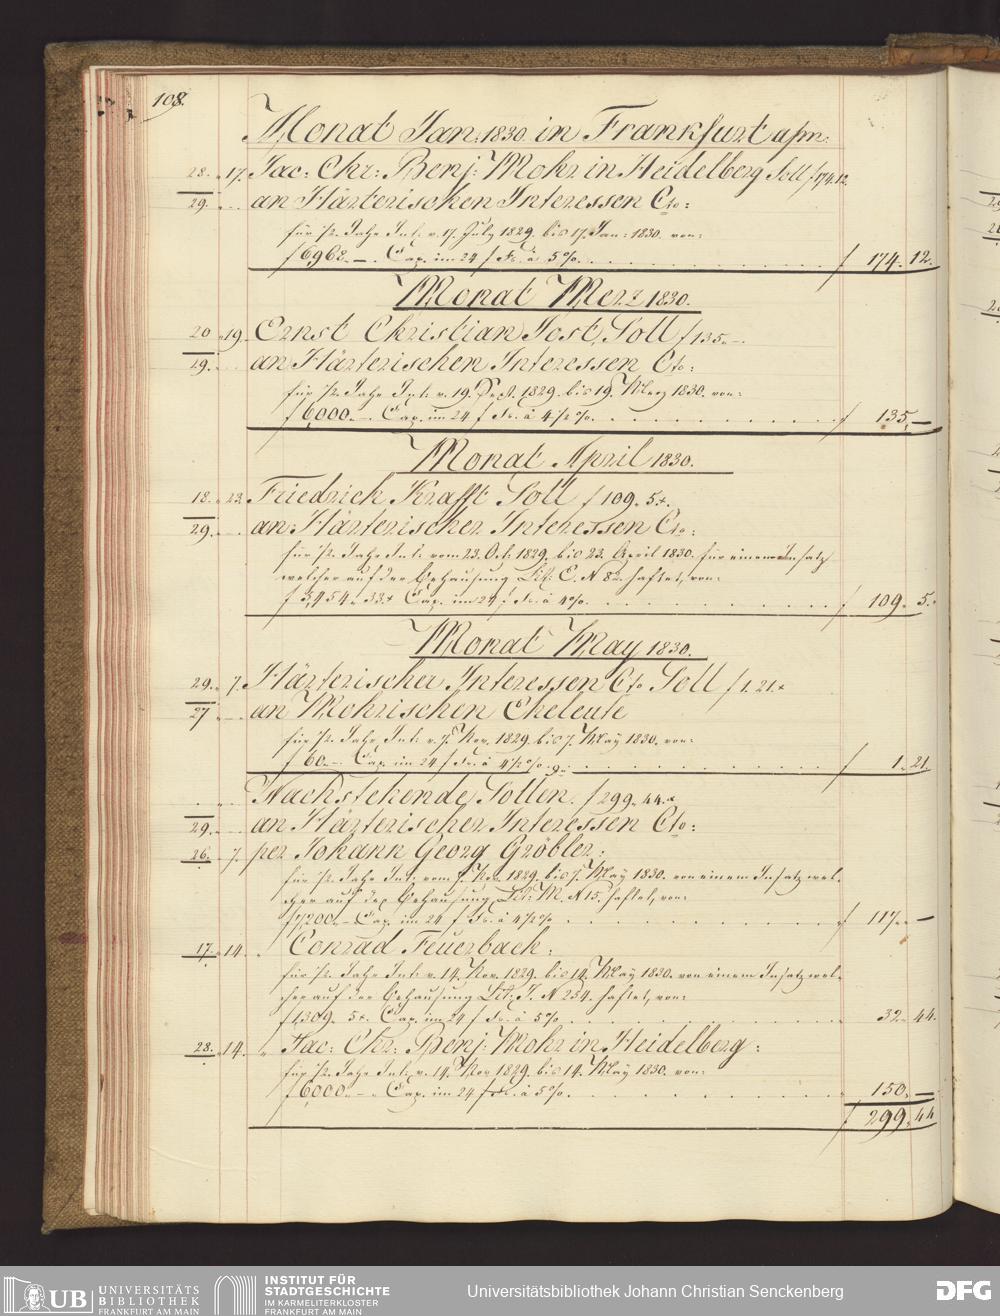 108.
Monat Jan: 1830. in Frankfurt a/m:
28. 17. Jac: Chr: Benj: Mohr in Heidelberg Soll f 174.12.
29. an Härterischen Interessen Cto:
für 1/2 Jahr Int: v. 17. July 1829. bis 17. Jan: 1830. von:
f 6968. – . Cap. im 24 f Fs. à 5%. f 174. 12.
Monat Merz 1830.
20 19. Ernst Christian Jost, Soll f 135. –.
29. an Härterischen Interessen Cto:
für 1/2 Jahr Int: v. 19. Sept. 1829. bis 19. Merz 1830. von:
f 6000. – . Cap. im 24 f Fs. à 4 1/2 %. f 135. –
Monat April 1830.
18. 23. Friedrich Krafft Soll f 109. 5x.
29. an Härterischen Interessen Cto:
für 1/2 Jahr Int: vom 23. Oct: 1829. bis 23. April 1830. für einem Insatz
welcher auf der Behausung Lit: C. N 82. haftet, von:
f 5,454. 33.x Cap. im 24 f Fs. à 4%. f 109. 5.
Monat May 1830.
29. 7. Härterischer Interessen Cto Soll f 1. 21.x
27 an Mohrischen Eheleute
für 1/2 Jahr Int: v. 7. Nov. 1829. bis 7. May 1830. von:
f 60. –. Cap. im 24 f Fs. à 4 1/2 %. f 1. 21.
Nachstehende Sollen. f 299. 44.x
29. an Härterischen Interessen Cto:
26. 7. per Johann Georg Gröbler:
für 1/2 Jahr Int: vom 7. Nov. 1829. bis 7. May 1830. von einem Insatz wel-
cher auf der Behausung Lit: M. N 15. haftet, von:
f 5,200. – Cap. im 24 f Fs. à 4 1/2 % f 117. –
17. 14. " Conrad Feuerbach:
für 1/2 Jahr Int: v. 14. Nov. 1829. bis 14. May 1830. von einem Insatz wel-
cher auf der Behausung Lit: J. N 234. haftet, von:
f 1,309. 5x. Cap. im 24 f Fs. à 5% 32. 44.
28. 14. " Jac: Chr: Benj: Mohr in Heidelberg:
für 1/2 Jahr Int: v. 14. Nov 1829. bis 14. May 1830. von:
f 6000. – . Cap. im 24 f Fs. à 5%. 150. –
f 299. 44
UB UNIVERSITÄTS
BIBLIOTHEK
FRANKFURT AM MAIN
INSTITUT FÜR
STADTGESCHICHTE
IM KARMELITERKLOSTER
FRANKFURT AM MAIN
Universitätsbibliothek Johann Christian Senckenberg
DFG